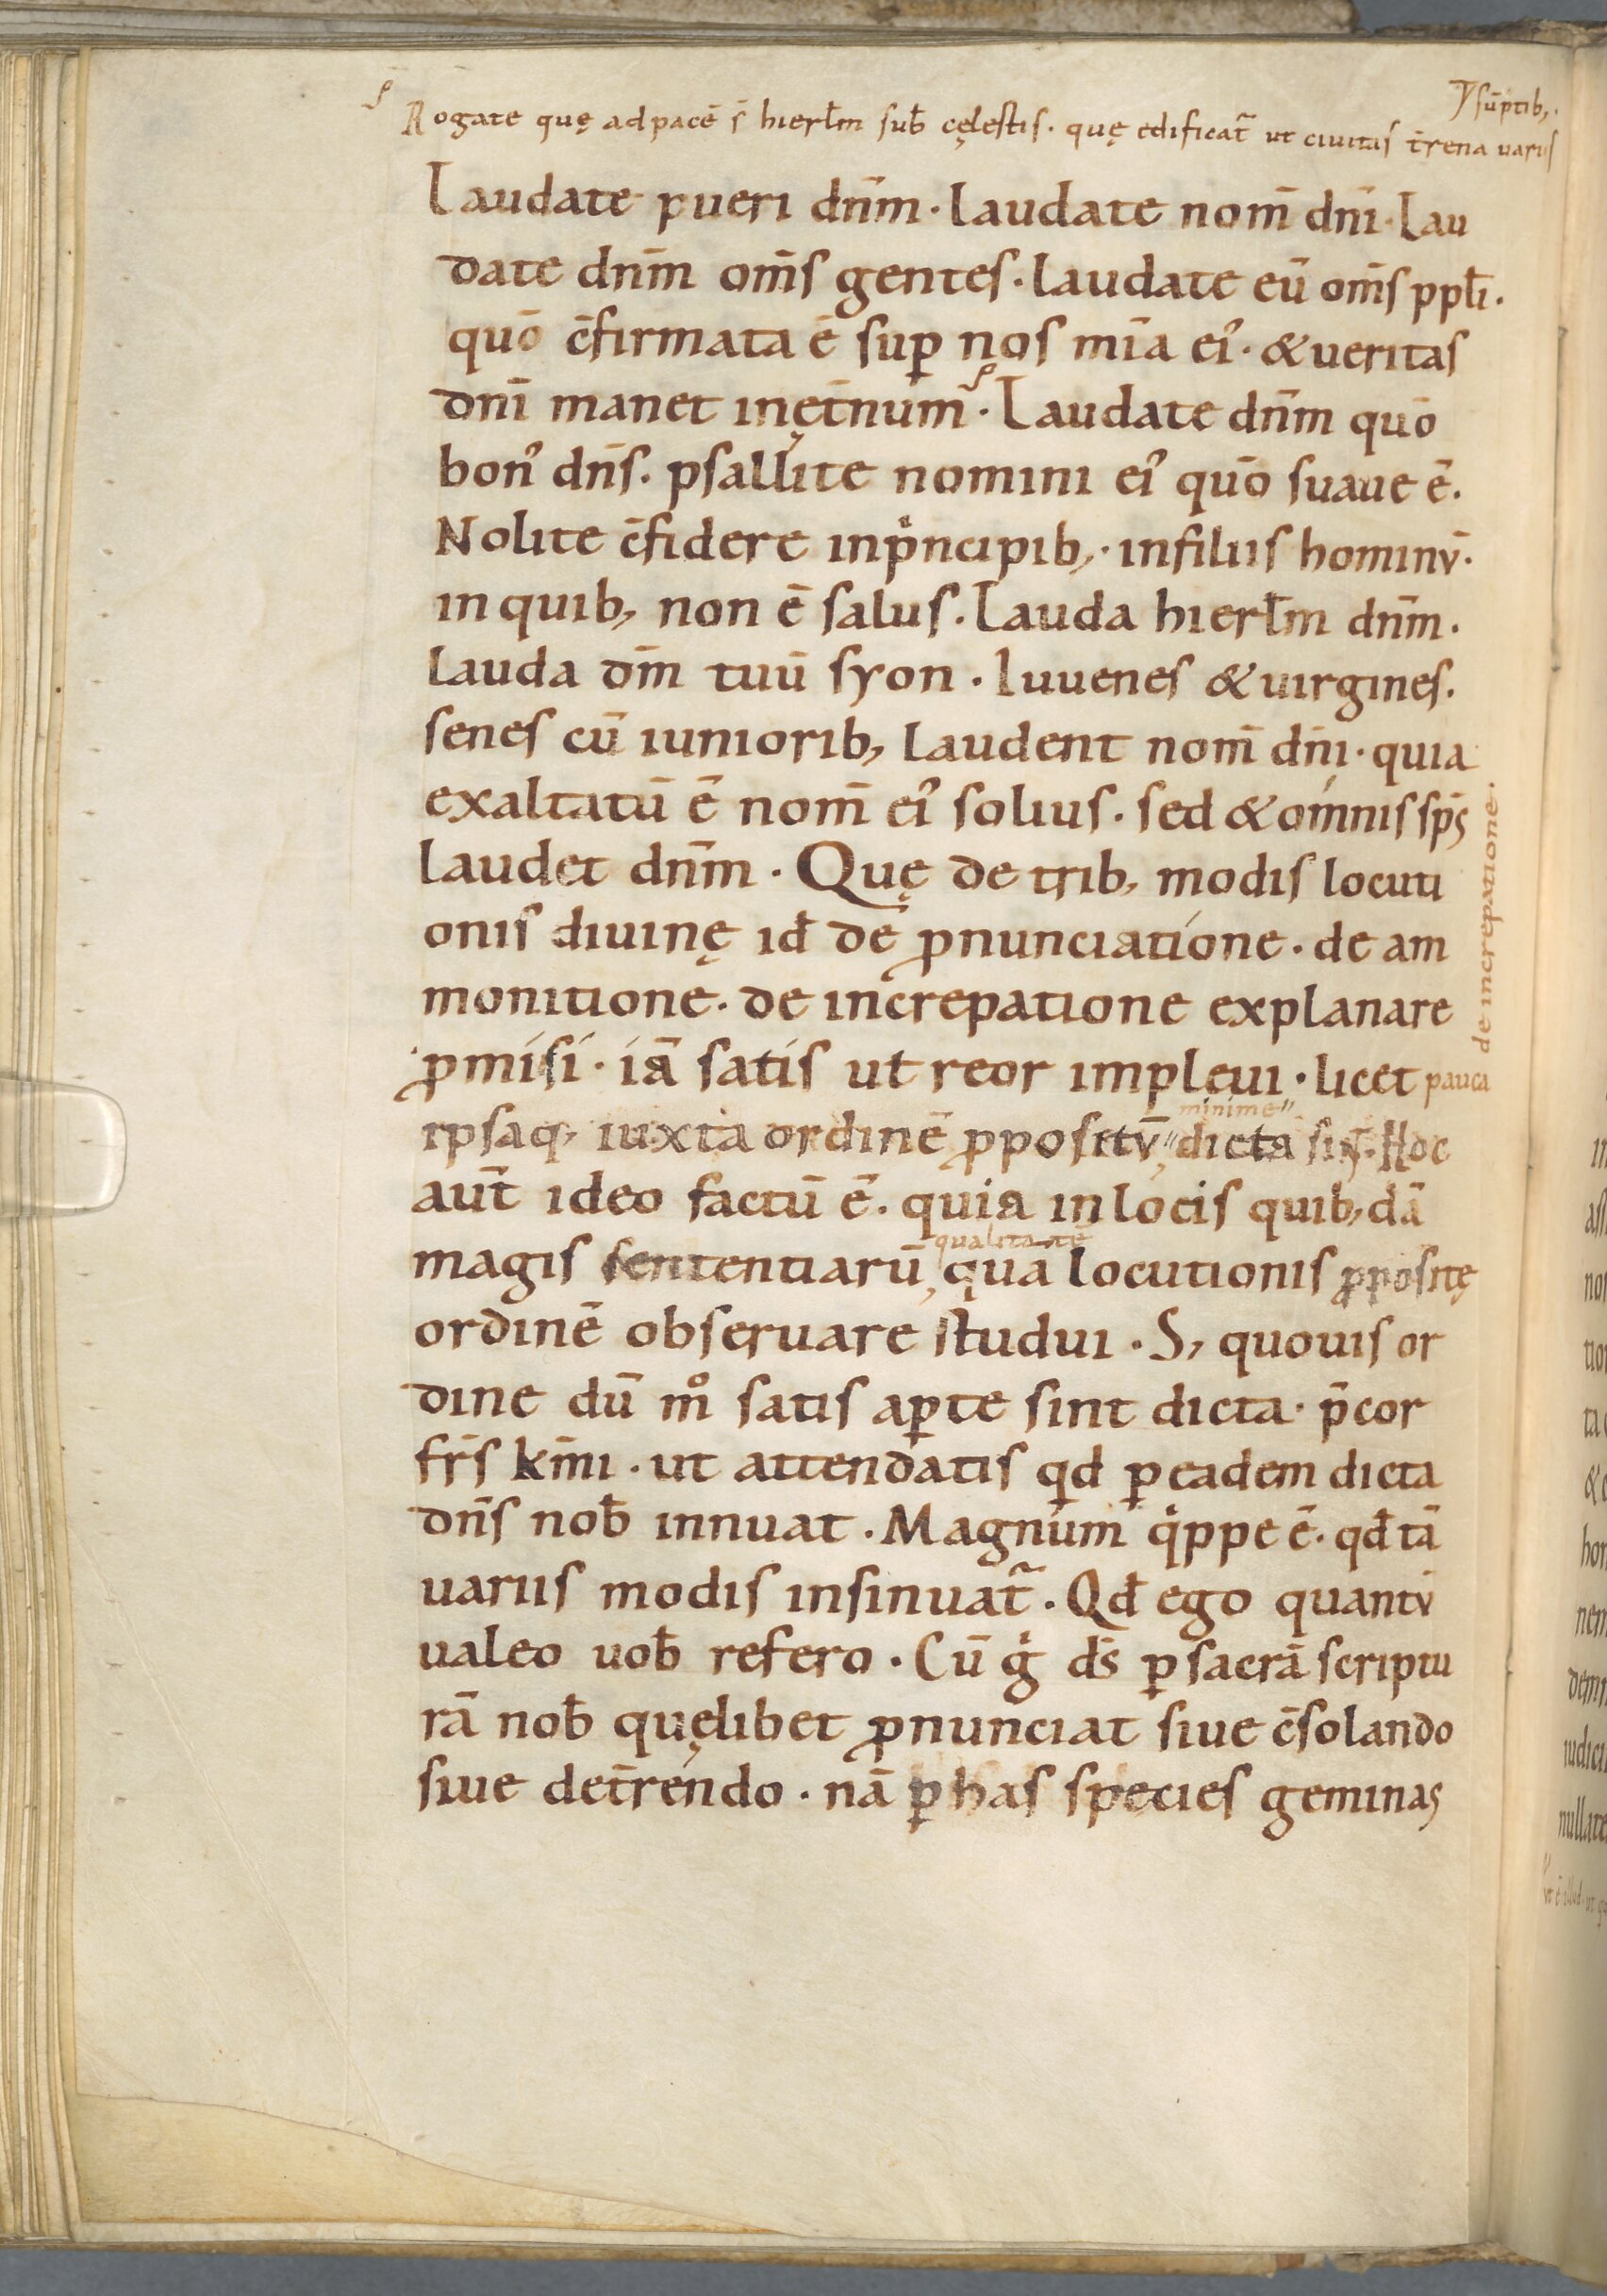 sūptib,.
Rogate quę ad pacē s̄ hierl̄m sub̄ cęlestis. quę edificat̄ ut ciuitas t̄rena uariis
Laudate pueri dn̄m. Laudate nom̄ dn̄i. Lau
date dn̄m om̄s gentes. Laudate eū om̄s ppl̄i.
quō c̄firmata ē sup nos mīa ei᾿. & ueritas
dn̄i manet in ęt̄num. Laudate dn̄m quō
bon᾿ dn̄s. psallite nomini ei᾿ quō suaue ē.
Nolite c̄fidere in pͥncipib,. in filiis hominv̄.
in quib, non ē salus. Lauda hierl̄m dn̄m.
Lauda dm̄ tuū syon. Iuuenes & uirgines.
senes cū iuniorib, laudent nom̄ dn̄i. quia
exaltatū ē nom̄ ei᾿ solius. sed & omnis sp̄s
laudet dn̄m. Quę de trib, modis locuti
onis diuinę id̄ de ꝓnunciatione. de am
monitione. de increpatione explanare
de increpatione.
ꝓmisi. iā satis ut reor impleui. licet pauca
minime
ipsaq, iuxta ordinē ꝓpositv̄ dicta sin̄t. Hoc
aut̄ ideo factū ē. quia in locis quib,dā
qualitatē
magis sententiarū quā locutionis ꝓpositę
ordinē obseruare studui. S, quouis or
dine dū mͦ satis aꝑte sint dicta. p̄cor
fr̄s km̄i. ut attendatis qd ꝑ eadem dicta
dn̄s nob̄ innuat. Magnum qͥppe ē. qd̄ tā
uariis modis insinuat̄. Qd̄ ego quantv̄
ualeo uob̄ refero. Cū gͥ ds̄ ꝑ sacrā scriptu
rā nob̄ quęlibet ꝓnunciat siue c̄solando
siue det̄rendo. nā ꝑ has species geminas